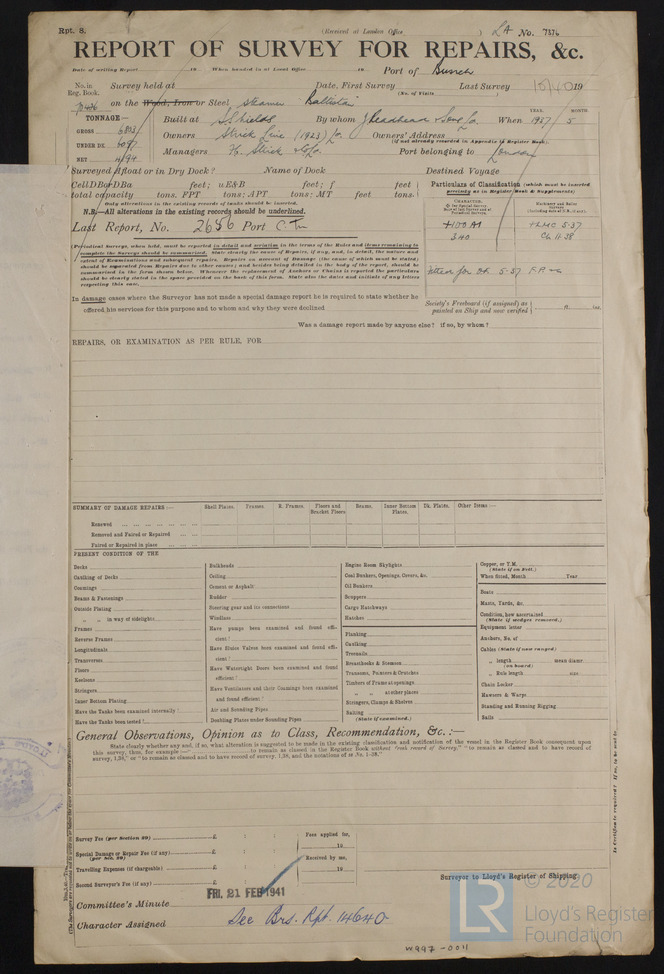 Rpt. 8.
(Received at London Office ) LA No. 7876
REPORT OF SURVEY FOR REPAIRS, &c.
Date of writing Report 19 When handed in at Local Office 19 Port of
No. in Reg. Book. Survey held at Date, First Survey Last Survey 10/40 19
(No. of Visits )
on the Wood, Iron or Steel Steamer
TONNAGE:—
GROSS 6803
UNDER DK. 6097
NET 4194
Built at S. Shields By whom J Readhead & Sons Ld When 1937 5
YEAR. MONTH.
Owners Strick Line (1923) Ld. Owners' Address
(if not already recorded in Appendix to Register Book)
Managers F. Strick & Co. Port belonging to London
Surveyed Afloat or in Dry Dock? Name of Dock Destined Voyage
Cell DB or DBa feet; u E&B feet; f feet
total capacity tons. FPT tons; APT tons; MT feet tons.
Only alterations in the existing records of tanks should be inserted.
N.B.—All alterations in the existing records should be underlined.
Last Report, No. 2656 Port
Particulars of Classification (which must be inserted precisely as in Register Book & Supplements)
+100 A1 +LMC 5·37
3.40 CL 11·38
(Periodical Surveys, when held, must be reported in detail and seriatim in the terms of the Rules and items remaining to complete the Surveys should be summarised. State clearly the cause of Repairs, if any, and, in detail, the nature and extent of Examinations and subsequent repairs. Repairs on account of Damage (the cause of which must be stated) should be separated from Repairs due to other causes; and besides being detailed in the body of the report, should be summarised in the form shown below. Whenever the replacement of Anchors or Chains is reported the particulars should be clearly stated in the space provided on the back of this form. State also the dates and initials of any letters respecting this case.
fitted for oil 5·37 F.P.
In damage cases where the Surveyor has not made a special damage report he is required to state whether he
offered his services for this purpose and to whom and why they were declined
Society's Freeboard (if assigned) as painted on Ship and now verified ft. ins.
Was a damage report made by anyone else? if so, by whom?
REPAIRS, OR EXAMINATION AS PER RULE, FOR
SUMMARY OF DAMAGE REPAIRS:— Shell Plates. Frames. R. Frames. Floors and Bracket Floors Beams. Inner Bottom Plates. Dk. Plates. Other Items:—
Renewed
Removed and Faired or Repaired
Faired or Repaired in place
PRESENT CONDITION OF THE
Decks
Caulking of Decks
Coamings
Beams & Fastenings
Outside Plating
" " in way of sidelights
Frames
Reverse Frames
Longitudinals
Transverses
Floors
Keelsons
Stringers
Inner Bottom Plating
Have the Tanks been examined internally?
Have the Tanks been tested?
Bulkheads
Ceiling
Cement or Asphalt
Rudder
Steering gear and its connections
Windlass
Have pumps been examined and found efficient?
Have Sluice Valves been examined and found efficient?
Have Watertight Doors been examined and found efficient?
Have Ventilators and their Coamings been examined and found efficient?
Air and Sounding Pipes
Doubling Plates under Sounding Pipes
Engine Room Skylights
Coal Bunkers, Openings, Covers, &c.
Oil Bunkers
Scuppers
Cargo Hatchways
Hatches
Planking
Caulking
Treenails
Breasthooks & Stemson
Transoms, Pointers & Crutches
Timbers of Frame at openings
" " at other places
Stringers, Clamps & Shelves
Salting
(State if examined.)
Copper, or T.M.
(State if on Felt.)
When fitted, Month Year
Boats
Masts, Yards, &c.
Condition, how ascertained
(State if wedges removed.)
Equipment letter
Anchors, No. of
Cables (State if now ranged)
" length mean diamr.
(on board)
" Rule length size
Chain Locker
Hawsers & Warps
Standing and Running Rigging
Sails
General Observations, Opinion as to Class, Recommendation, &c.:—
State clearly whether any, and if so, what alteration is suggested to be made in the existing classification and notification of the vessel in the Register Book consequent upon
this survey, thus, for example:—" to remain as classed in the Register Book without fresh record of Survey," "to remain as classed and to have record of
survey, 1,39," or "to remain as classed and to have record of survey, 1,39, and the notations of ss No. 1-39."
Survey Fee (per Section 29) £ Fees applied for,
Special Damage or Repair Fee (if any) £ 19
(per Sec. 29)
Received by me,
Travelling Expenses (if chargeable) £ 19
Second Surveyor's Fee (if any) £
Surveyor to Lloyd's Register of Shipping.
Committee's Minute FRI. 21 FEB 1941
Character Assigned See Brs. Rpt. 14640
W997-0011
LR © 2020
Lloyd's Register
Foundation